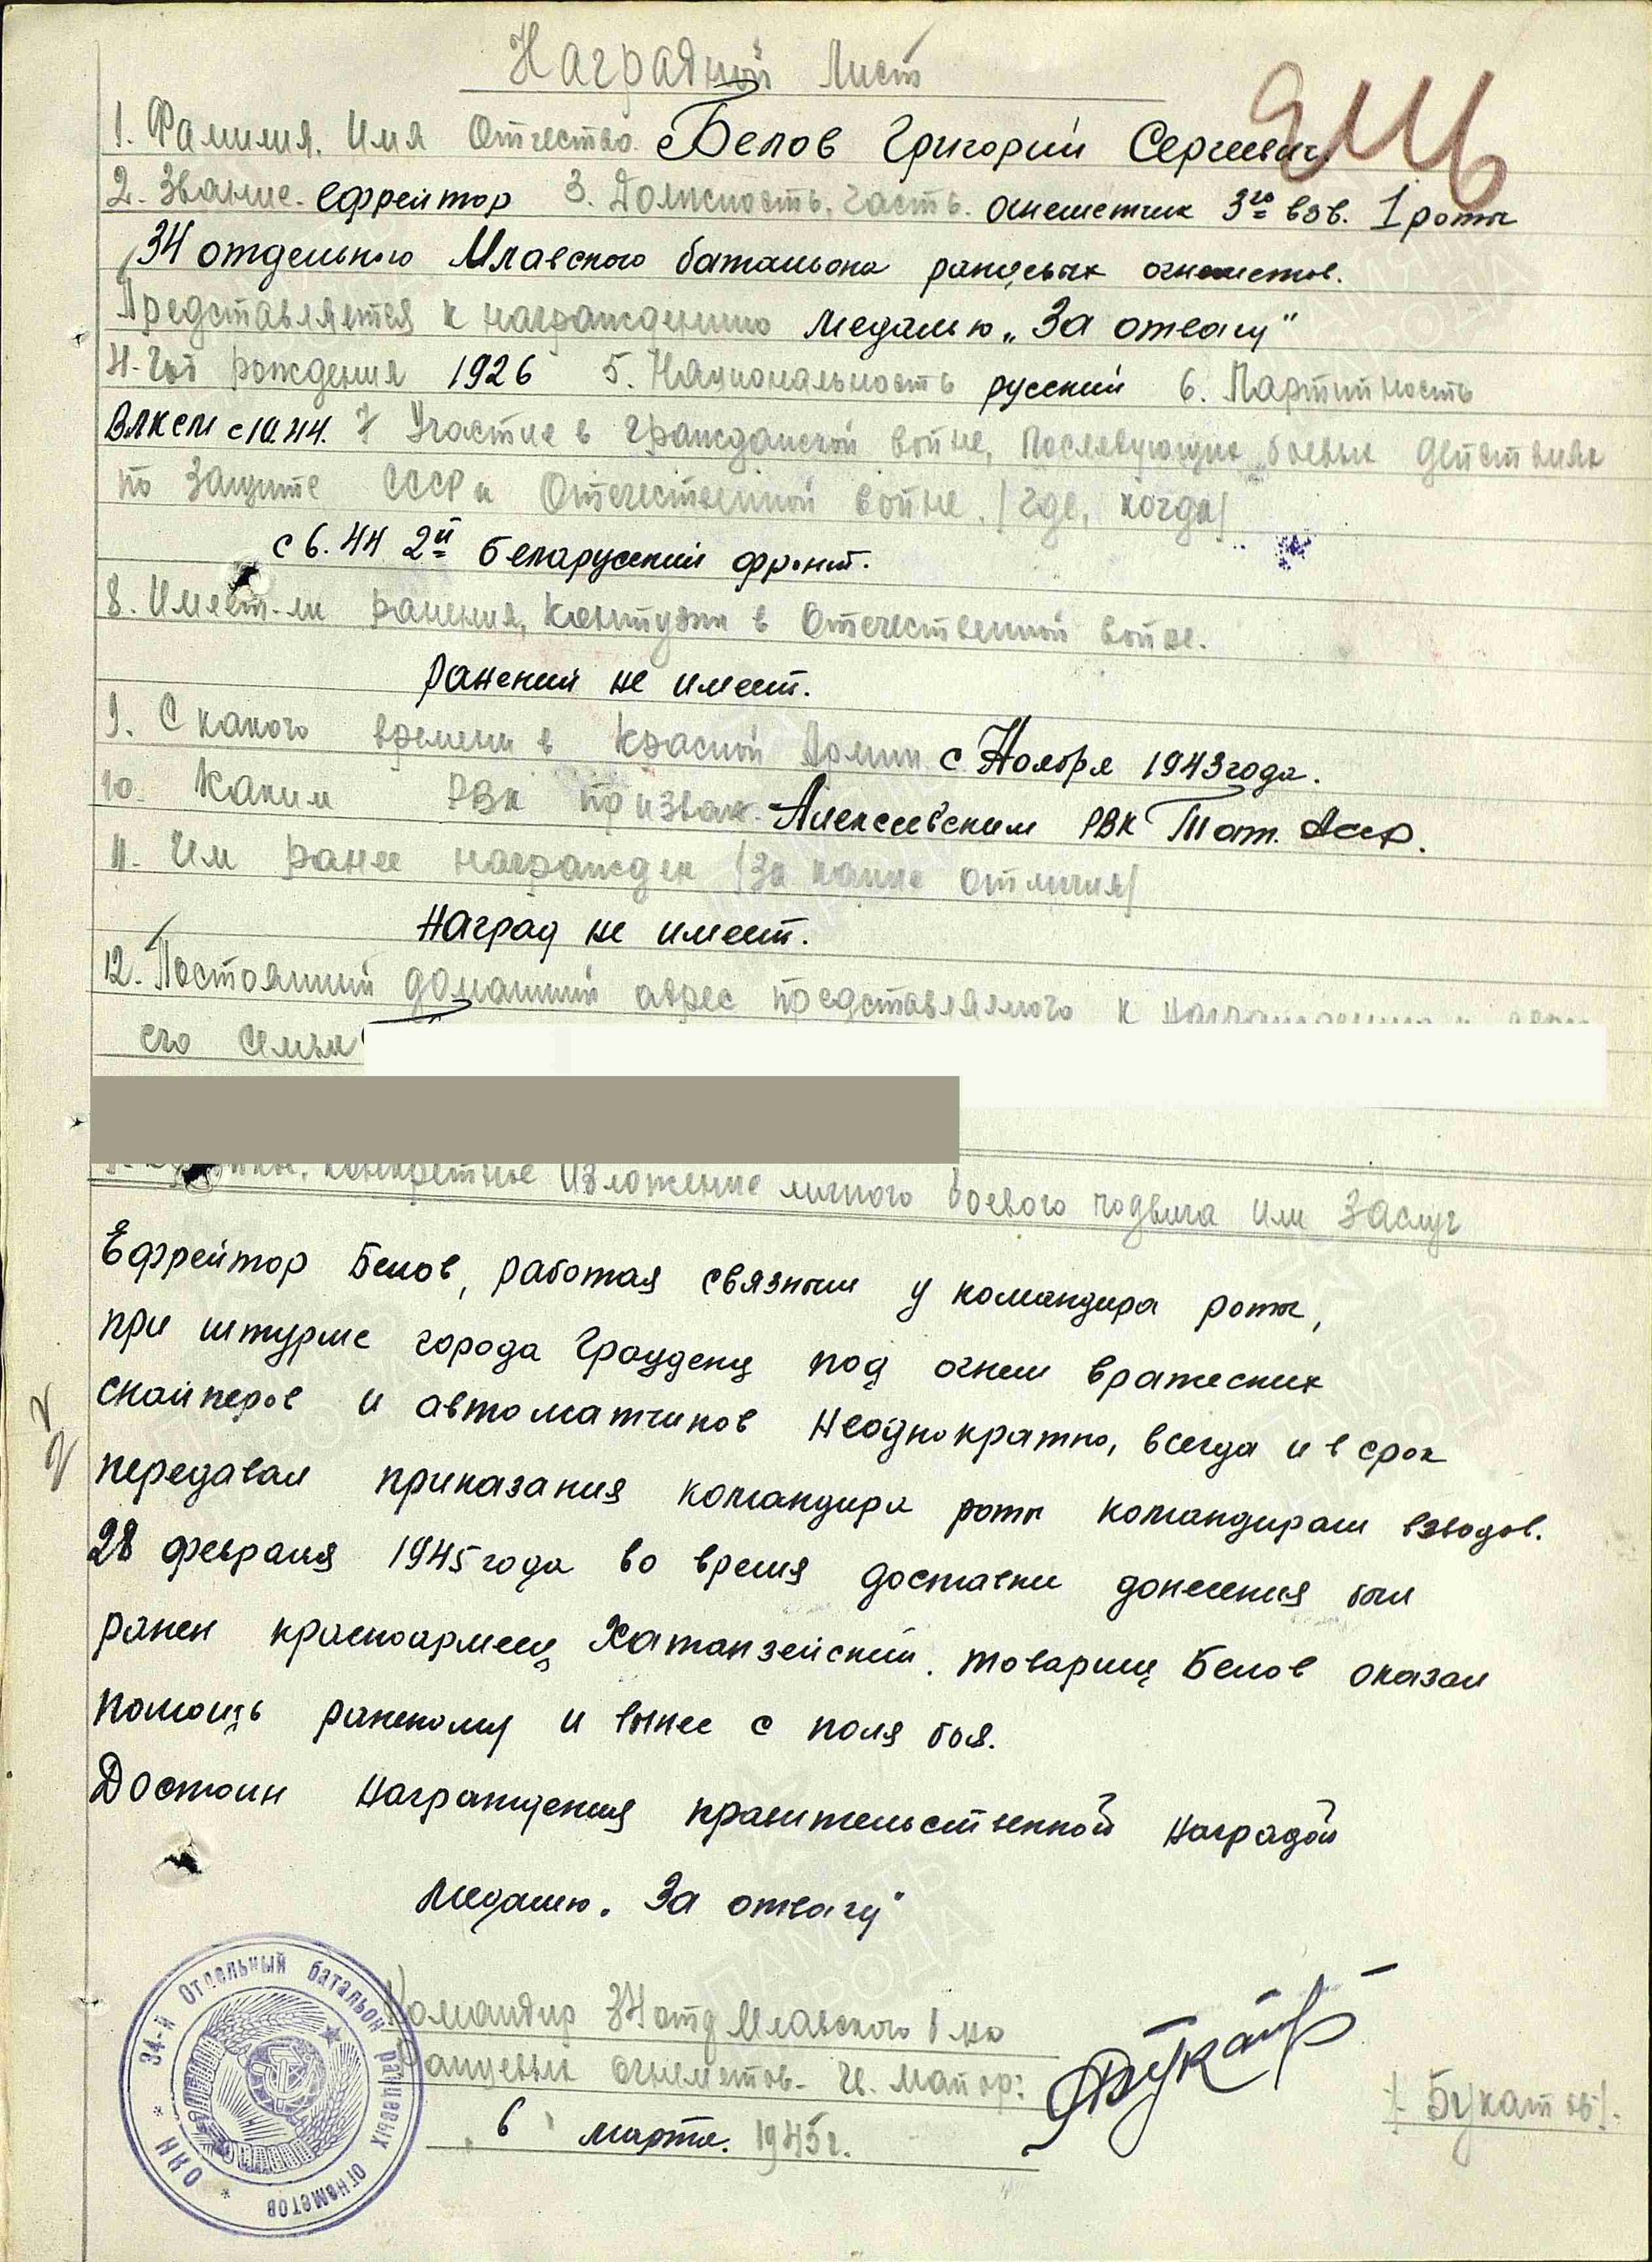 Наградной Лист
1. Фамилия, Имя Отчество Белов Григорий Сергеевич
2. Звание. ефрейтор 3. Должность, часть. огнеметчик 3го взв. 1 роты
34 отдельного Млавского батальона ранцевых огнеметов.
Представляется к награждению медалью „За отвагу“
4. Год рождения 1926 5. Национальность русский 6. Партийность
ВЛКСМ с 10.44. 7 Участие в гражданской войне, последующих боевых действиях
по защите СССР и Отечественной войне. /где, когда/
с 6.44 2й беларусский фронт.
8. Имеет-ли ранения, контузии в Отечественной войне.
Ранений не имеет.
9. С какого времени в Красной Армии с Ноября 1943 года.
10. Каким РВК призван. Алексеевским РВК Тат. АССР.
11. Чем ранее награжден /за какие отличия/
Наград не имеет.
12. Постоянный домашний адрес представляемого к награждению и
его семьи
конкретное изложение личного боевого подвига или заслуг
Ефрейтор Белов, работая связным у командира роты,
при штурме города Грауденц под огнем вражеских
снайперов и автоматчиков неоднократно, всегда и в срок
передавал приказания командира роты командирам взводов.
28 февраля 1945 года во время доставки донесения был
ранен красноармеец Хатанзейский. товарищ Белов оказал
помощь раненому и вынес с поля боя.
Достоин награждения правительственной наградой
медалью „За отвагу“
Командир 34 отд Млавского б-на
Ранцевых огнеметов- гв. майор:
/Букатов/.
„6“ марта. 1945 г.
34-й Отдельный батальон ранцевых огнеметов
ПАМЯТЬ НАРОДА